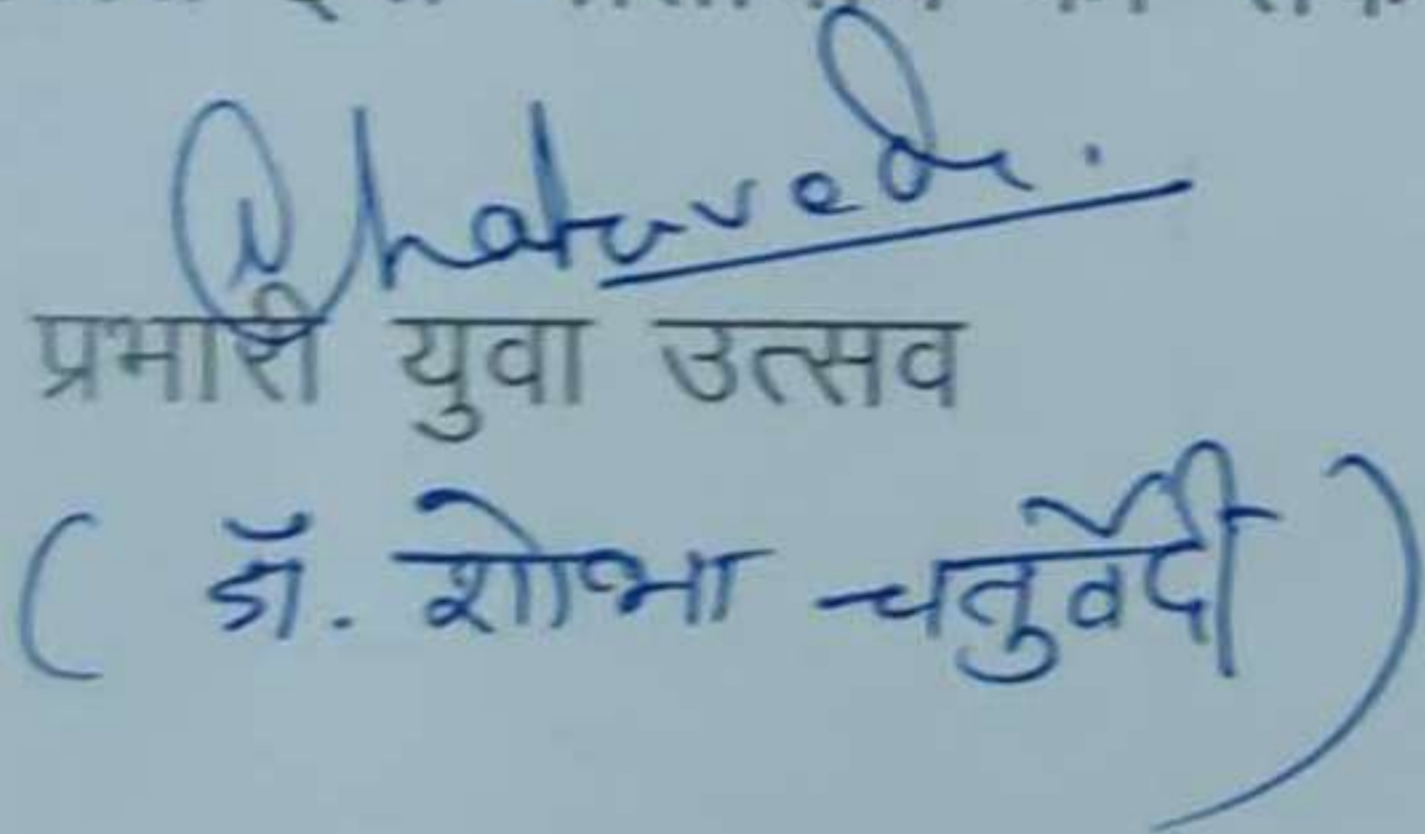 Chaturvedi.
प्रभारी युवा उत्सव
( डॉ. शोभा चतुर्वेदी )